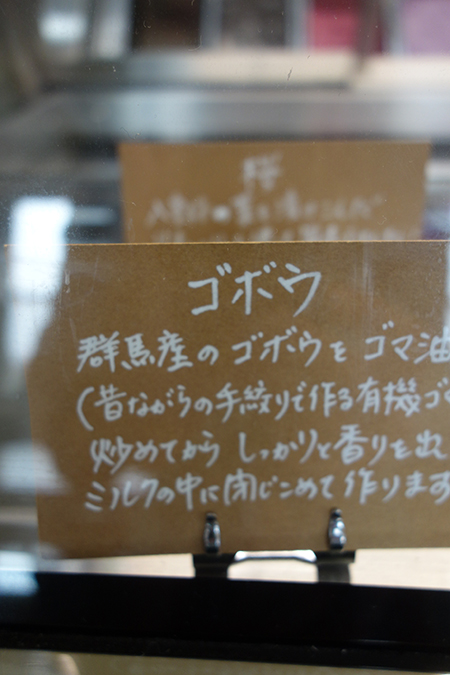 桜
ゴボウ
群馬産のゴボウをゴマ油
(昔ながらの手絞りで作る有機ゴマ
炒めてから しっかりと香りを出
ミルクの中に閉じこめて作ります